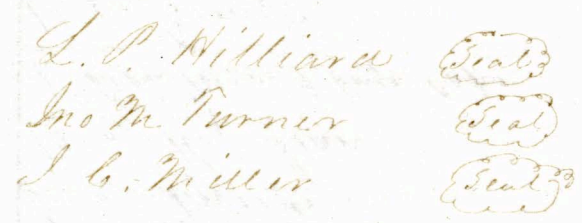 L. P. Hilliard Seal
Jno M. Turner Seal
J C. Miller Seal